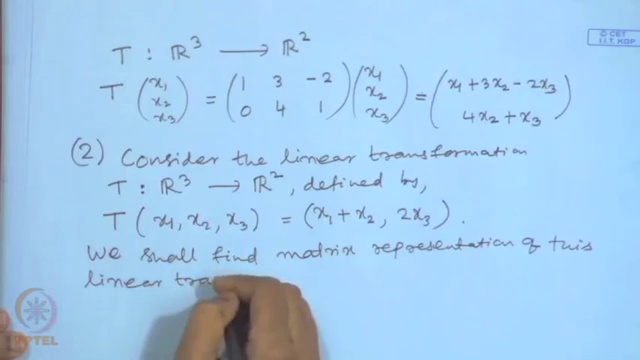 © CET
I.I.T. KGP
T : ℝ³ ⟶ ℝ²
T (x₁ x₂ x₃) = (1 3 -2 0 4 1) (x₁ x₂ x₃) = (x₁ + 3x₂ - 2x₃ 4x₂ + x₃)
(2) Consider the linear transformation
T : ℝ³ ⟶ ℝ², defined by,
T (x₁, x₂, x₃) = (x₁ + x₂, 2x₃).
We shall find matrix representation of this
linear tra
NPTEL